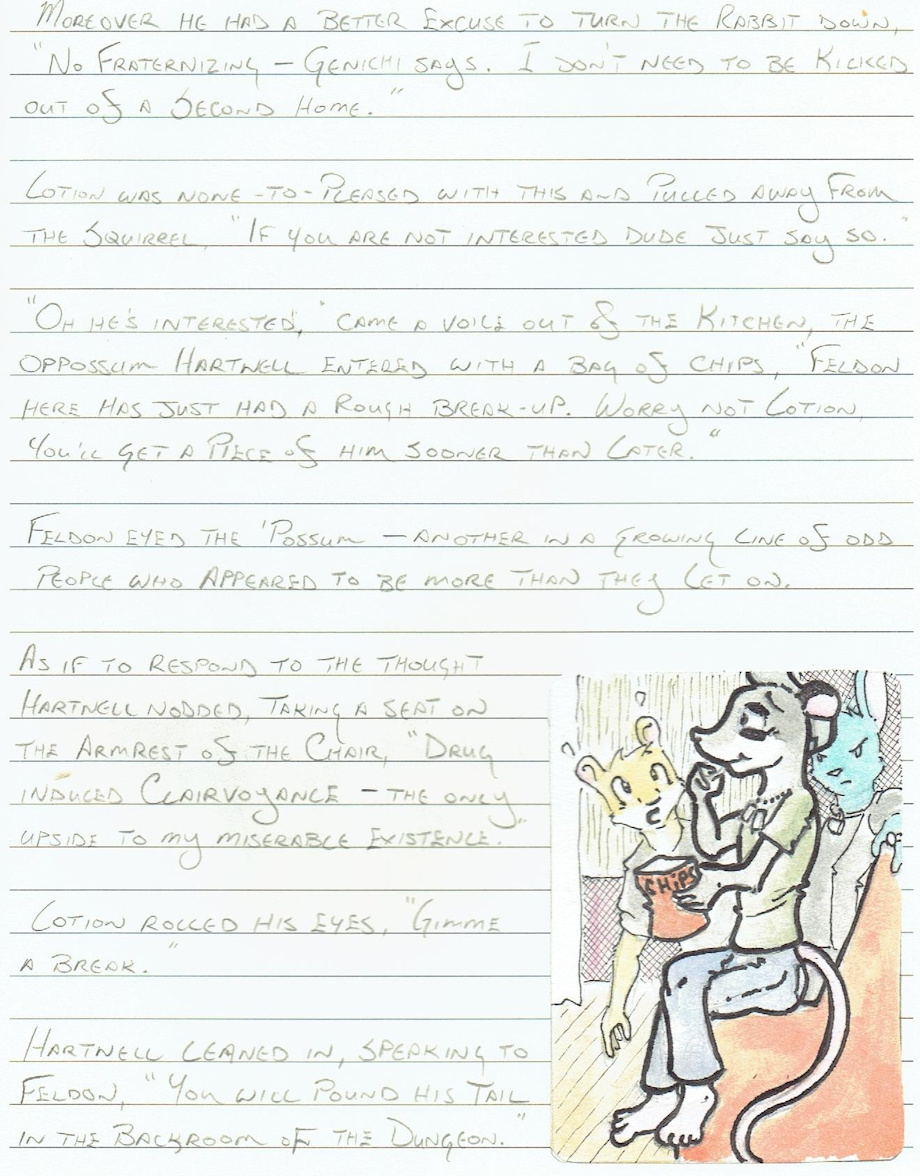 Moreover he had a better excuse to turn the rabbit down,
"No fraternizing – Genichi says. I don't need to be kicked
out of a second home."
Lotion was none-to-pleased with this and pulled away from
the squirrel, "If you are not interested dude just say so."
"Oh he's interested," came a voice out of the kitchen, the
oppossum Hartwell entered with a bag of chips, "Feldon
here has just had a rough break-up. Worry not Lotion,
you'll get a piece of him sooner than later."
Feldon eyed the 'possum – another in a growing line of odd
people who appeared to be more than they let on.
As if to respond to the thought
Hartwell nodded, taking a seat on
the armrest of the chair, "Drug
induced clairvoyance – the only
upside to my miserable existence."
Lotion rolled his eyes, "Gimme
a break."
Hartwell leaned in, speaking to
Feldon, "You will pound his tail
in the backroom of the Dungeon."
?
?
CHiPS